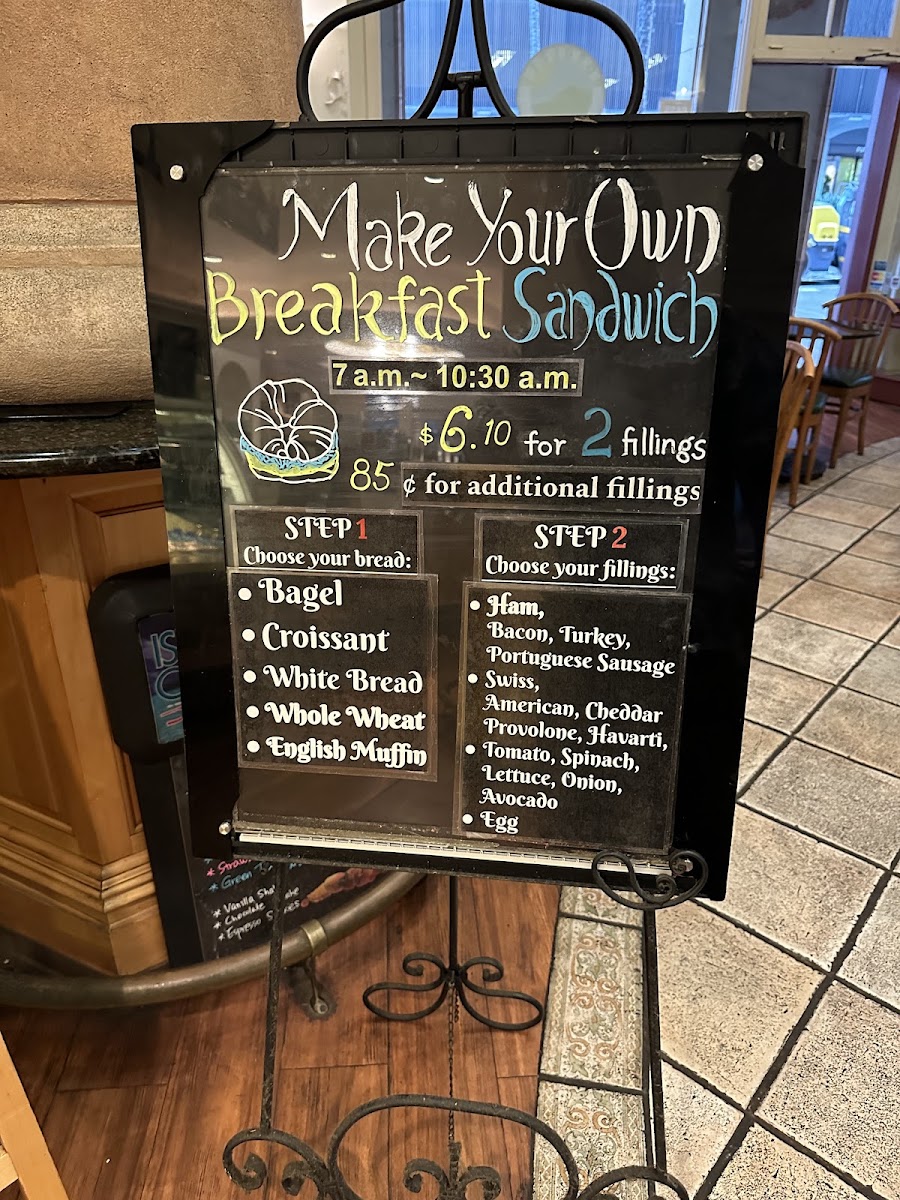 Make Your Own
Breakfast Sandwich
7 a.m.~ 10:30 a.m.
$6.10 for 2 fillings
85 ¢ for additional fillings
STEP 1
Choose your bread:
• Bagel
• Croissant
• White Bread
• Whole Wheat
• English Muffin
STEP 2
Choose your fillings:
• Ham,
Bacon, Turkey,
Portuguese Sausage
• Swiss,
American, Cheddar
Provolone, Havarti,
• Tomato, Spinach,
Lettuce, Onion,
Avocado
• Egg
* Green
* Vanilla
* Chocolate
* Espresso